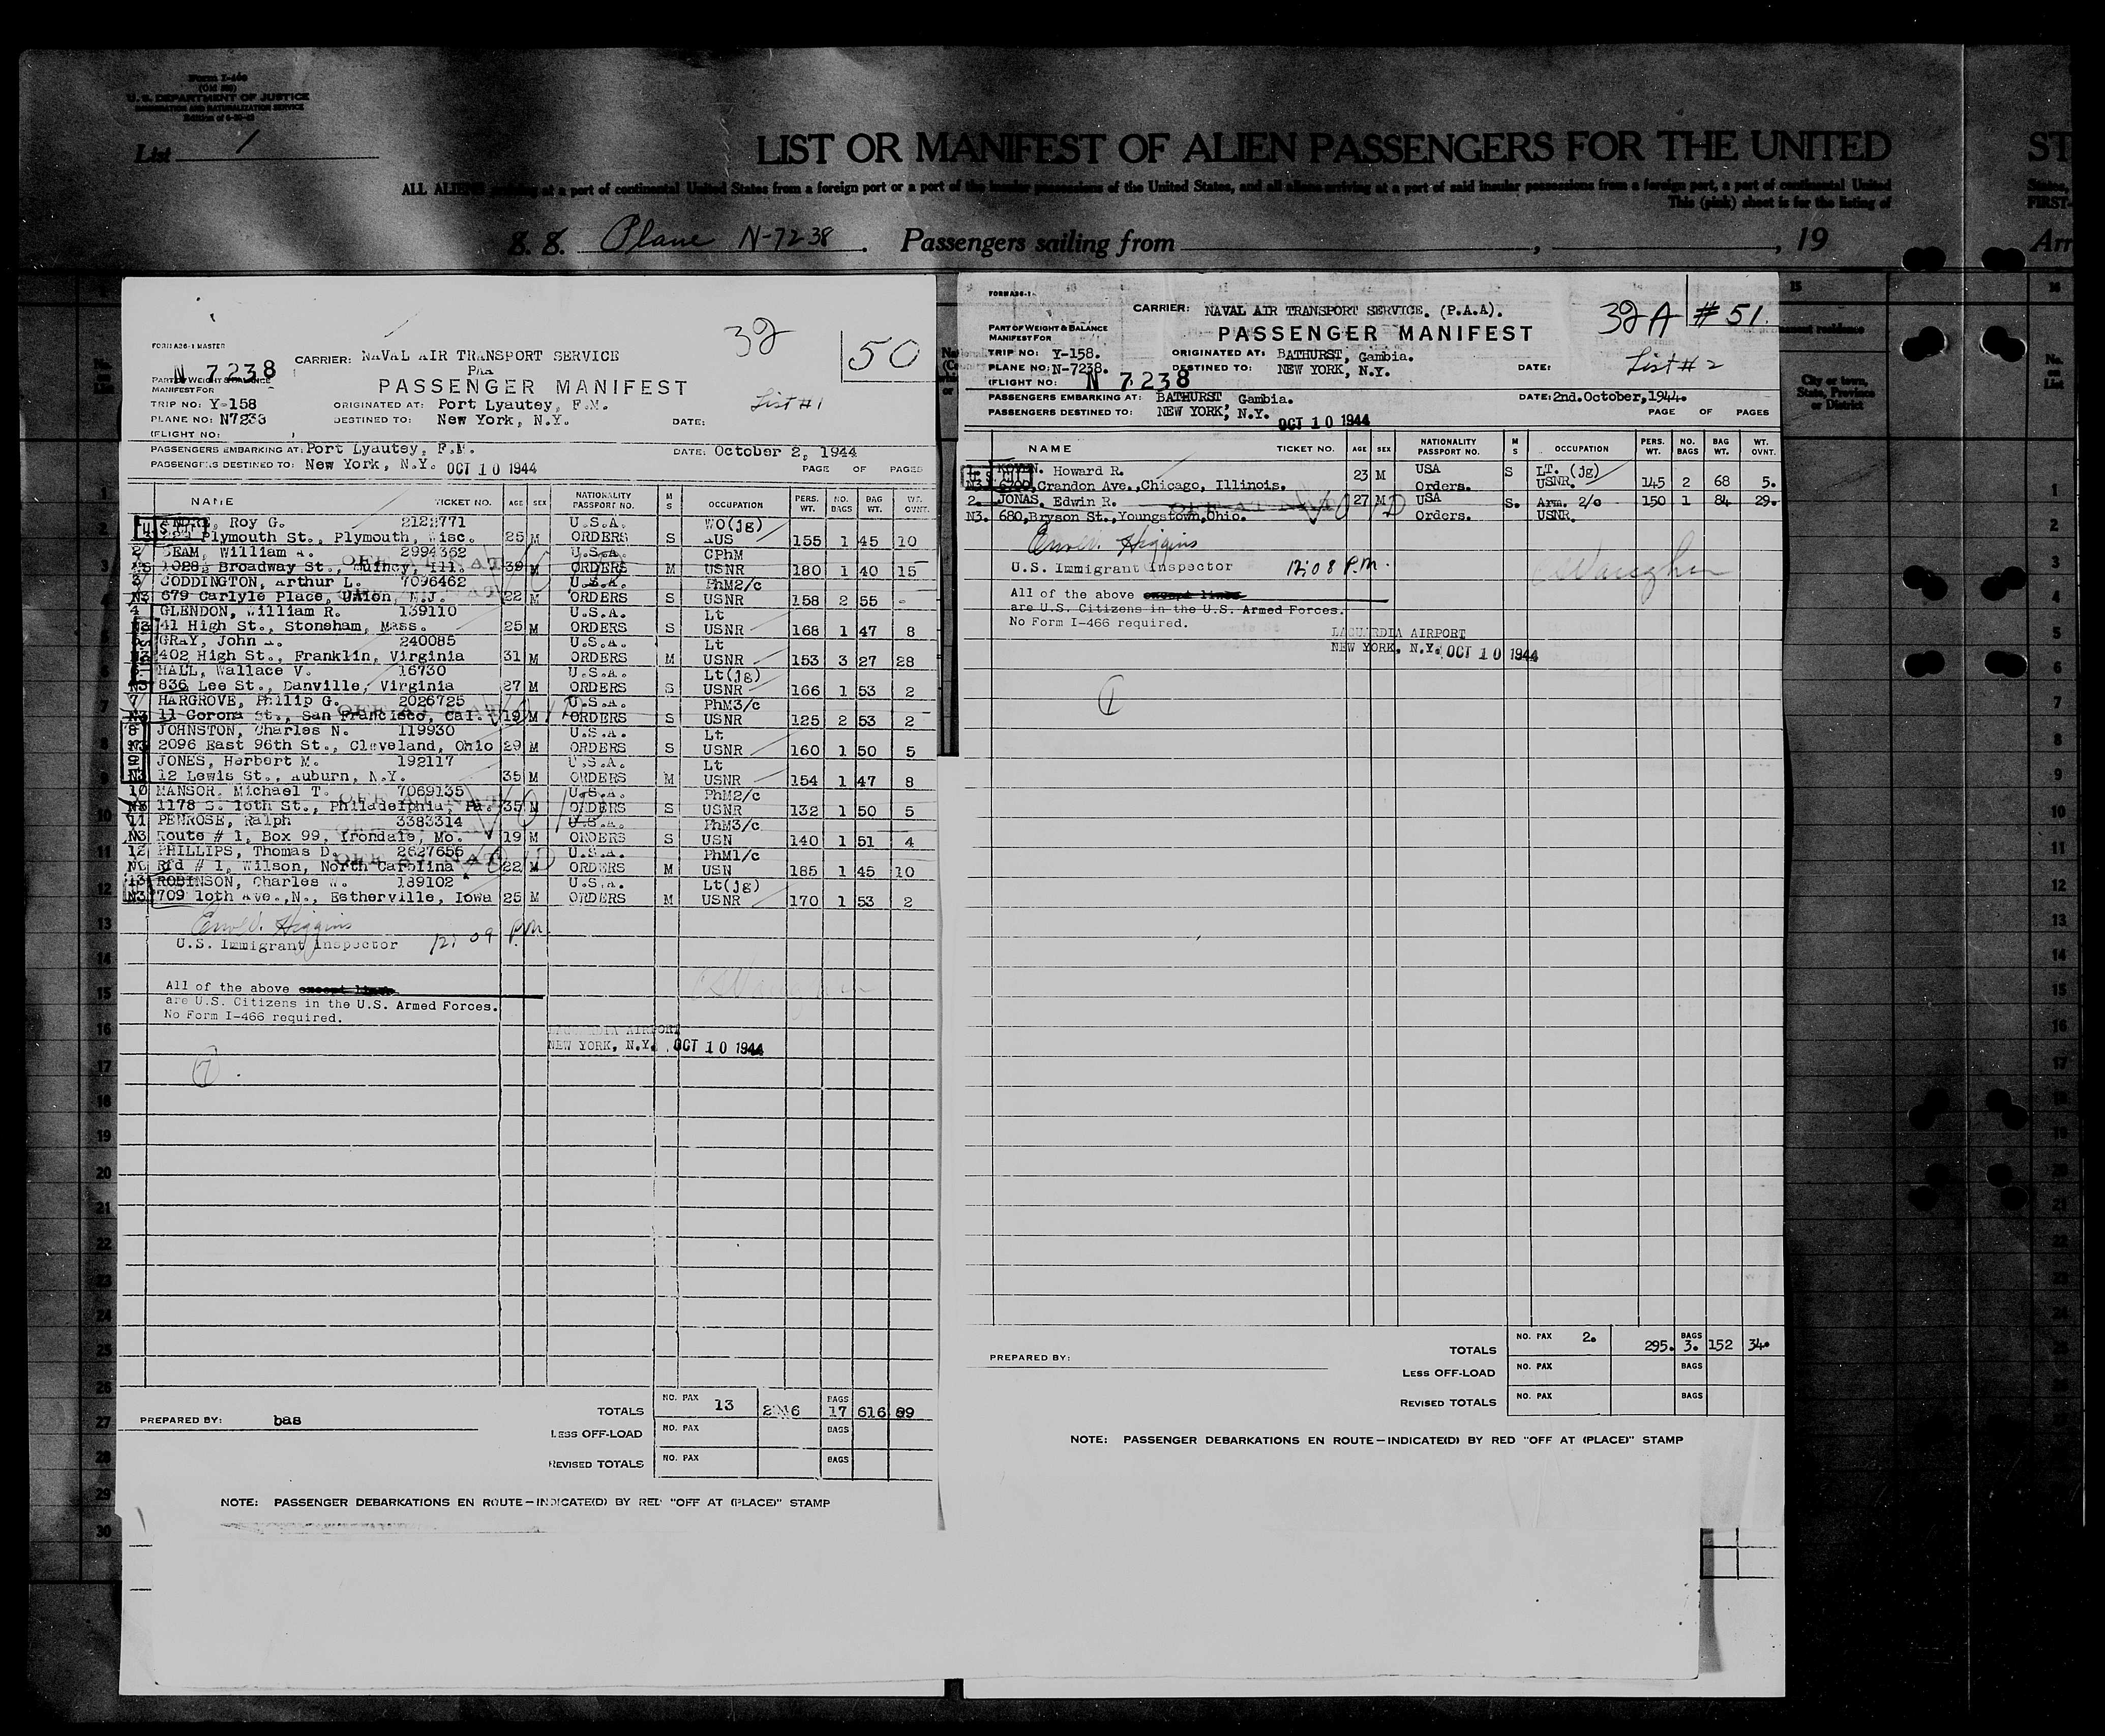 Form I-466
(Old 500)
U. S. DEPARTMENT OF JUSTICE
IMMIGRATION AND NATURALIZATION SERVICE
List 1
LIST OR MANIFEST OF ALIEN PASSENGERS FOR THE UNITED
ST
ALL ALIENS arriving at a port of continental United States from a foreign port or a port of the insular possessions of the United States, and all aliens arriving at a port of said insular possessions from a foreign port, a port of continental United
States,
This (pink) sheet is for the listing of
FIRST-
S. S. Plane N-7238. Passengers sailing from , , 19
Arr
FORM A26-1 MASTER
32
50
N 7238
CARRIER: NAVAL AIR TRANSPORT SERVICE
PAA
PART OF WEIGHT & BALANCE
MANIFEST FOR
PASSENGER MANIFEST
TRIP NO: Y-158 ORIGINATED AT: Port Lyautey, F.M. List #1
PLANE NO: N7238 DESTINED TO: New York, N.Y. DATE:
(FLIGHT NO: )
PASSENGERS EMBARKING AT: Port Lyautey, F.M. DATE: October 2, 1944
PASSENGERS DESTINED TO: New York, N.Y. OCT 10 1944 PAGE OF PAGES
NAME TICKET NO. AGE SEX NATIONALITY PASSPORT NO. M S OCCUPATION PERS. WT. NO. BAGS BAG WT. WT. OVNT.
ANDRE, Roy G. 2122771 U.S.A. WO(jg)
Plymouth St., Plymouth, Wisc. 25 M ORDERS S AUS 155 1 45 10
2 BEAM, William A. 2994362 U.S.A. CPhM
N3 1028½ Broadway St., Quincy, Ill. 39 M ORDERS M USNR 180 1 40 15
3 CODDINGTON, Arthur L. 7096462 U.S.A. PhM2/c
N3 679 Carlyle Place, Union, N.J. 22 M ORDERS S USNR 158 2 55 -
4 GLENDON, William R. 139110 U.S.A. Lt
N3 41 High St., Stoneham, Mass. 25 M ORDERS S USNR 168 1 47 8
GRAY, John A. 240085 U.S.A. Lt
N3 402 High St., Franklin, Virginia 31 M ORDERS M USNR 153 3 27 28
HALL, Wallace V. 16730 U.S.A. Lt(jg)
N3 836 Lee St., Danville, Virginia 27 M ORDERS S USNR 166 1 53 2
7 HARGROVE, Phillip G. 2026725 U.S.A. PhM3/c
N3 11 Corona St., San Francisco, Cal. 19 M ORDERS S USNR 125 2 53 2
8 JOHNSTON, Charles N. 119930 U.S.A. Lt
N3 2096 East 96th St., Cleveland, Ohio 29 M ORDERS S USNR 160 1 50 5
9 JONES, Herbert M. 192117 U.S.A. Lt
N3 12 Lewis St., Auburn, N.Y. 35 M ORDERS M USNR 154 1 47 8
10 MANSOR, Michael T. 7069135 U.S.A. PhM2/c
N3 1178 S. 10th St., Philadelphia, Pa. 35 M ORDERS S USNR 132 1 50 5
11 PENROSE, Ralph 3383314 U.S.A. PhM3/c
N3 Route # 1, Box 99, Irondale, Mo. 19 M ORDERS S USN 140 1 51 4
12 PHILLIPS, Thomas D. 2627656 U.S.A. PhM1/c
Rfd # 1, Wilson, North Carolina 22 M ORDERS M USN 185 1 45 10
13 ROBINSON, Charles W. 189102 U.S.A. Lt(jg)
N3 709 10th Ave.,N., Estherville, Iowa 25 M ORDERS M USNR 170 1 53 2
Higgins
U.S. Immigrant Inspector 12:09 P.M.
All of the above except lines
are U.S. Citizens in the U.S. Armed Forces.
No Form I-466 required.
LAGUARDIA AIRPORT
NEW YORK, N.Y. OCT 10 1944
7
TOTALS NO. PAX 13 BAGS 17 616 99
PREPARED BY: bas
LESS OFF-LOAD NO. PAX BAGS
REVISED TOTALS NO. PAX BAGS
NOTE: PASSENGER DEBARKATIONS EN ROUTE—INDICATE(D) BY RED "OFF AT (PLACE)" STAMP
FORM A26-1
CARRIER: NAVAL AIR TRANSPORT SERVICE. (P.A.A). 32A #51.
PART OF WEIGHT & BALANCE
MANIFEST FOR
PASSENGER MANIFEST
TRIP NO: Y-158. ORIGINATED AT: BATHURST, Gambia. List #2
PLANE NO: N-7238. DESTINED TO: NEW YORK, N.Y. DATE:
(FLIGHT NO: N 7238
PASSENGERS EMBARKING AT: BATHURST, Gambia. DATE: 2nd.October,1944.
PASSENGERS DESTINED TO: NEW YORK, N.Y. OCT 10 1944 PAGE OF PAGES
NAME TICKET NO. AGE SEX NATIONALITY PASSPORT NO. M S OCCUPATION PERS. WT. NO. BAGS BAG WT. WT. OVNT.
KOVEN. Howard R. 23 M USA S LT. (jg)
N3 6700,Crandon Ave.,Chicago, Illinois. Orders. USNR. 145 2 68 5.
2 JONAS. Edwin R. 27 M USA S. Arm. 2/c 150 1 84 29.
N3. 680,Bryson St.,Youngstown,Ohio. Orders. USNR.
Higgins
U.S. Immigrant Inspector 12:08 P.M.
All of the above except lines
are U.S. Citizens in the U.S. Armed Forces.
No Form I-466 required.
LAGUARDIA AIRPORT
NEW YORK, N.Y. OCT 10 1944
1
TOTALS NO. PAX 2. 295. BAGS 3. 152 34.
PREPARED BY:
LESS OFF-LOAD NO. PAX BAGS
REVISED TOTALS NO. PAX BAGS
NOTE: PASSENGER DEBARKATIONS EN ROUTE—INDICATE(D) BY RED "OFF AT (PLACE)" STAMP
15
16
permanent residence
City or town, State, Province or District
No. on List